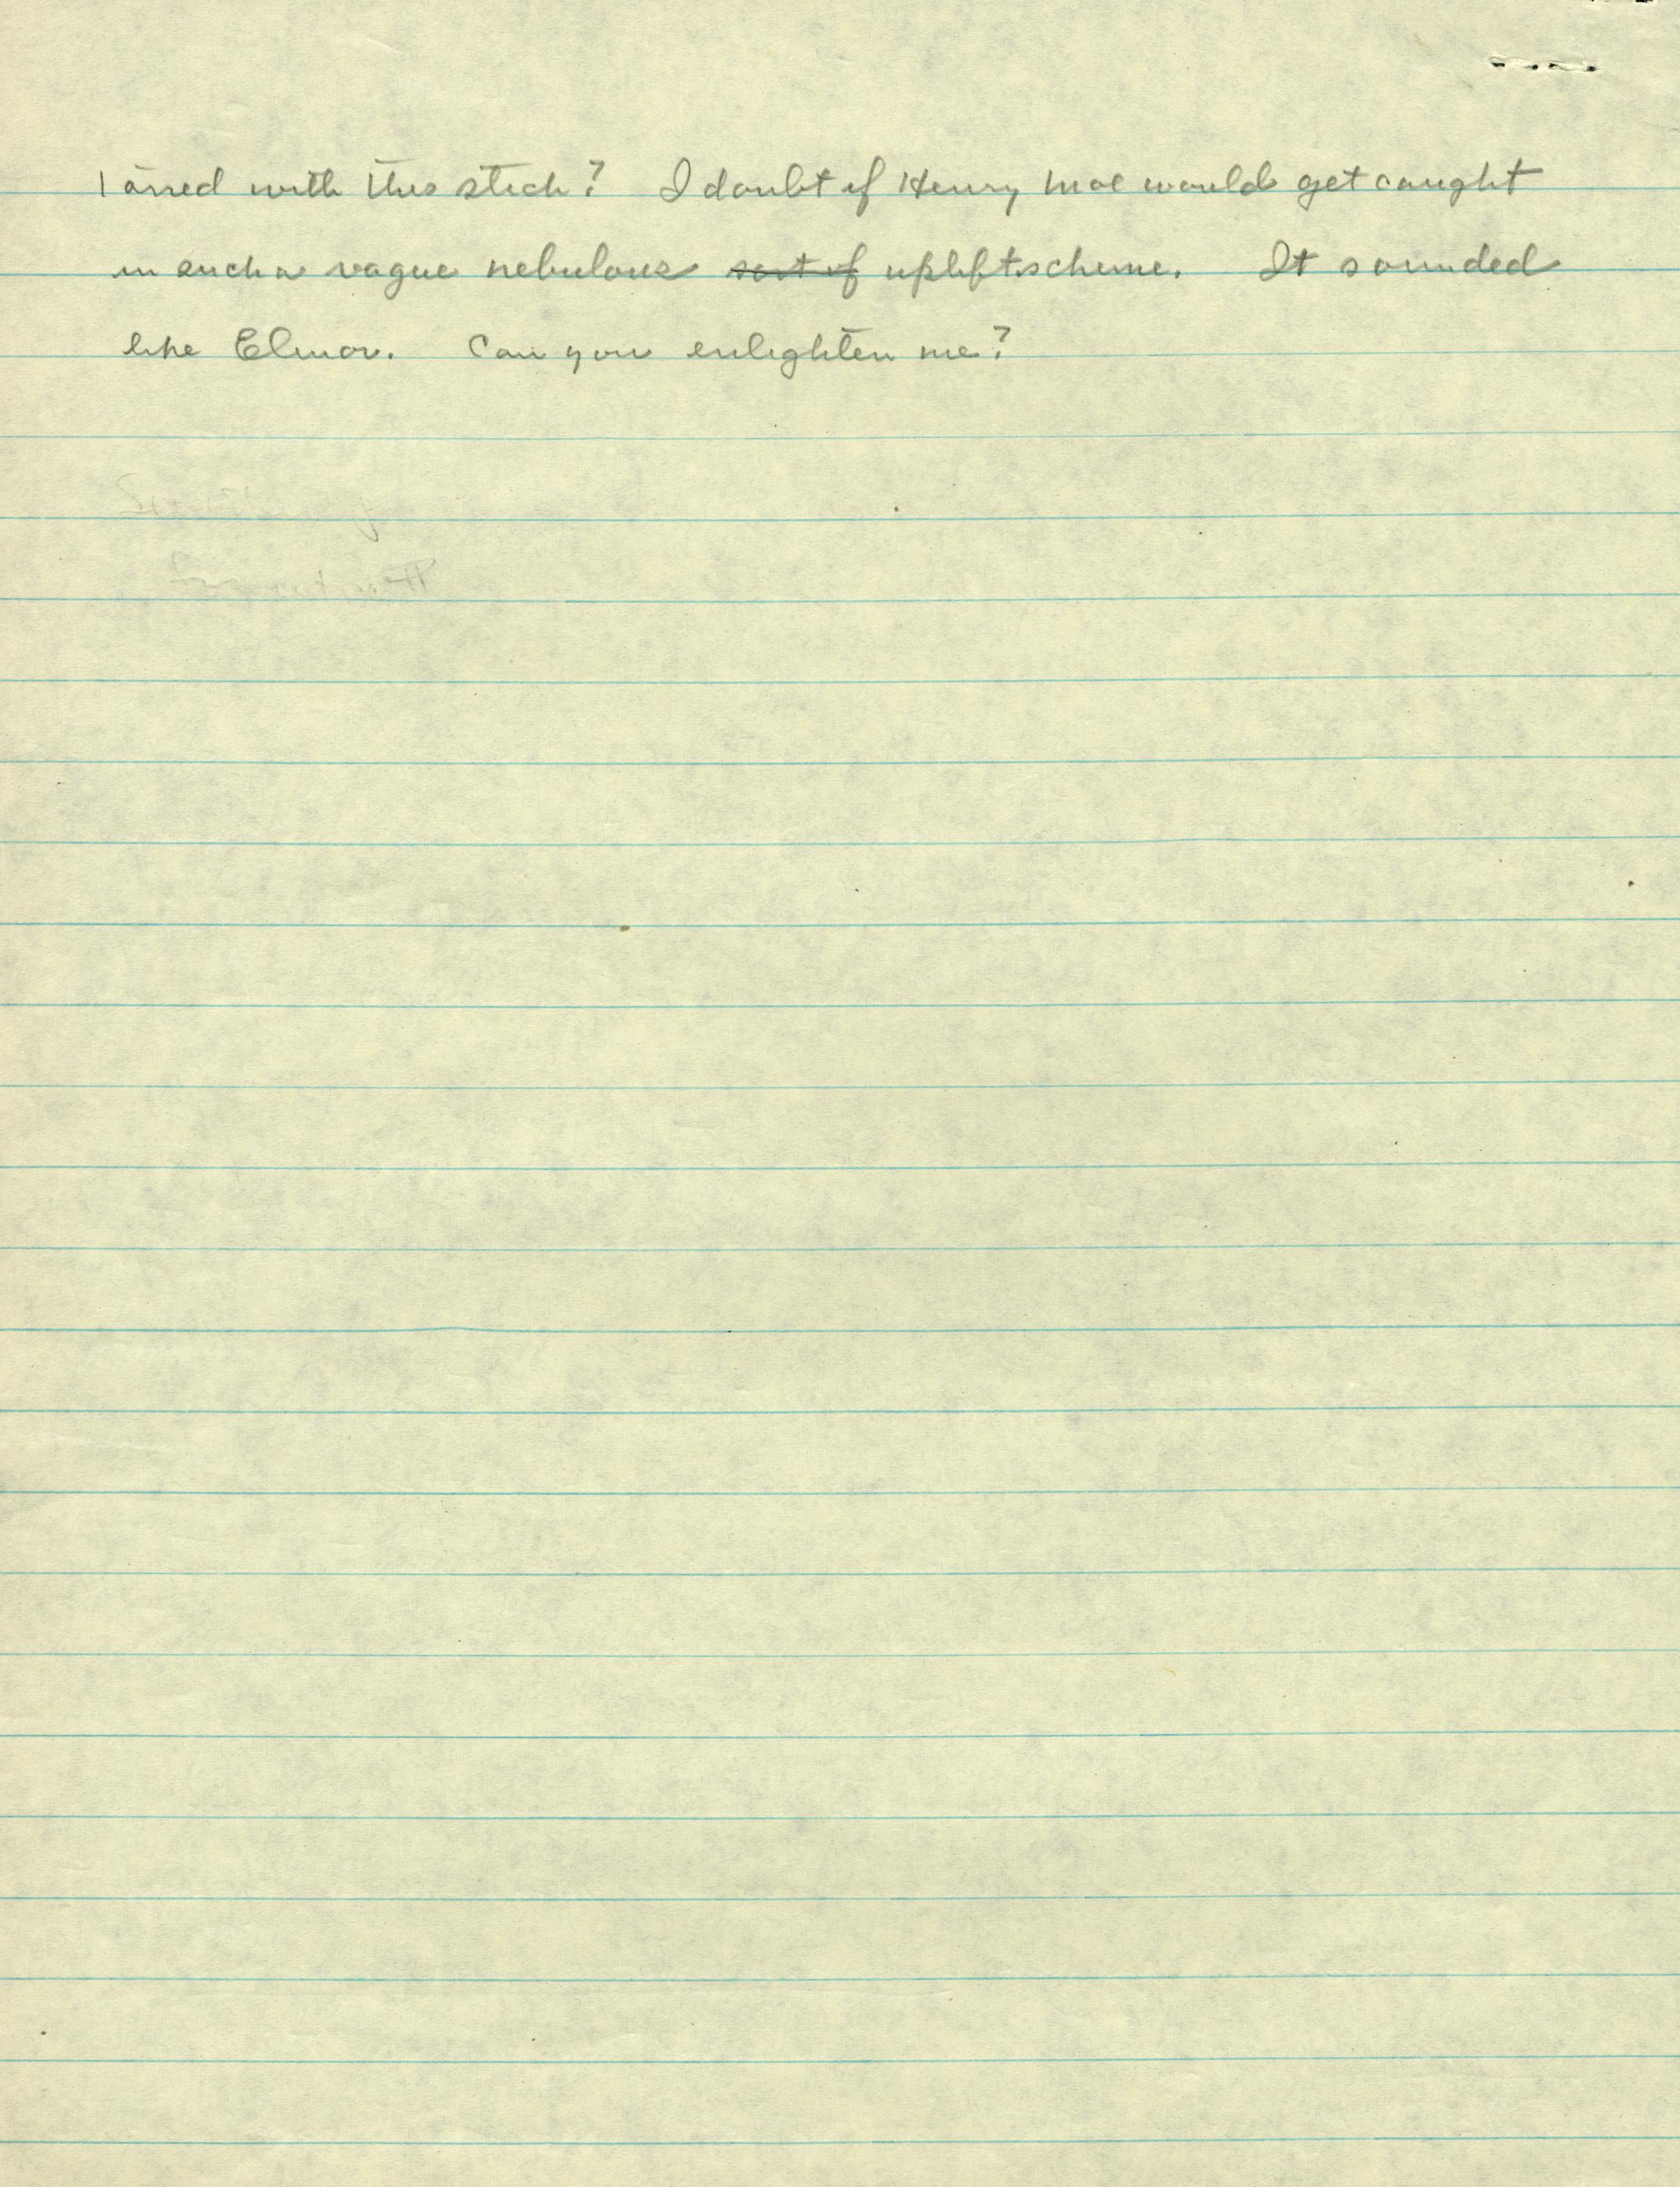 tarred with this stick? I doubt if Henry Moe would get caught
in such a vague nebulous sort of uplift scheme. It sounded
like Elinor. Can you enlighten me?